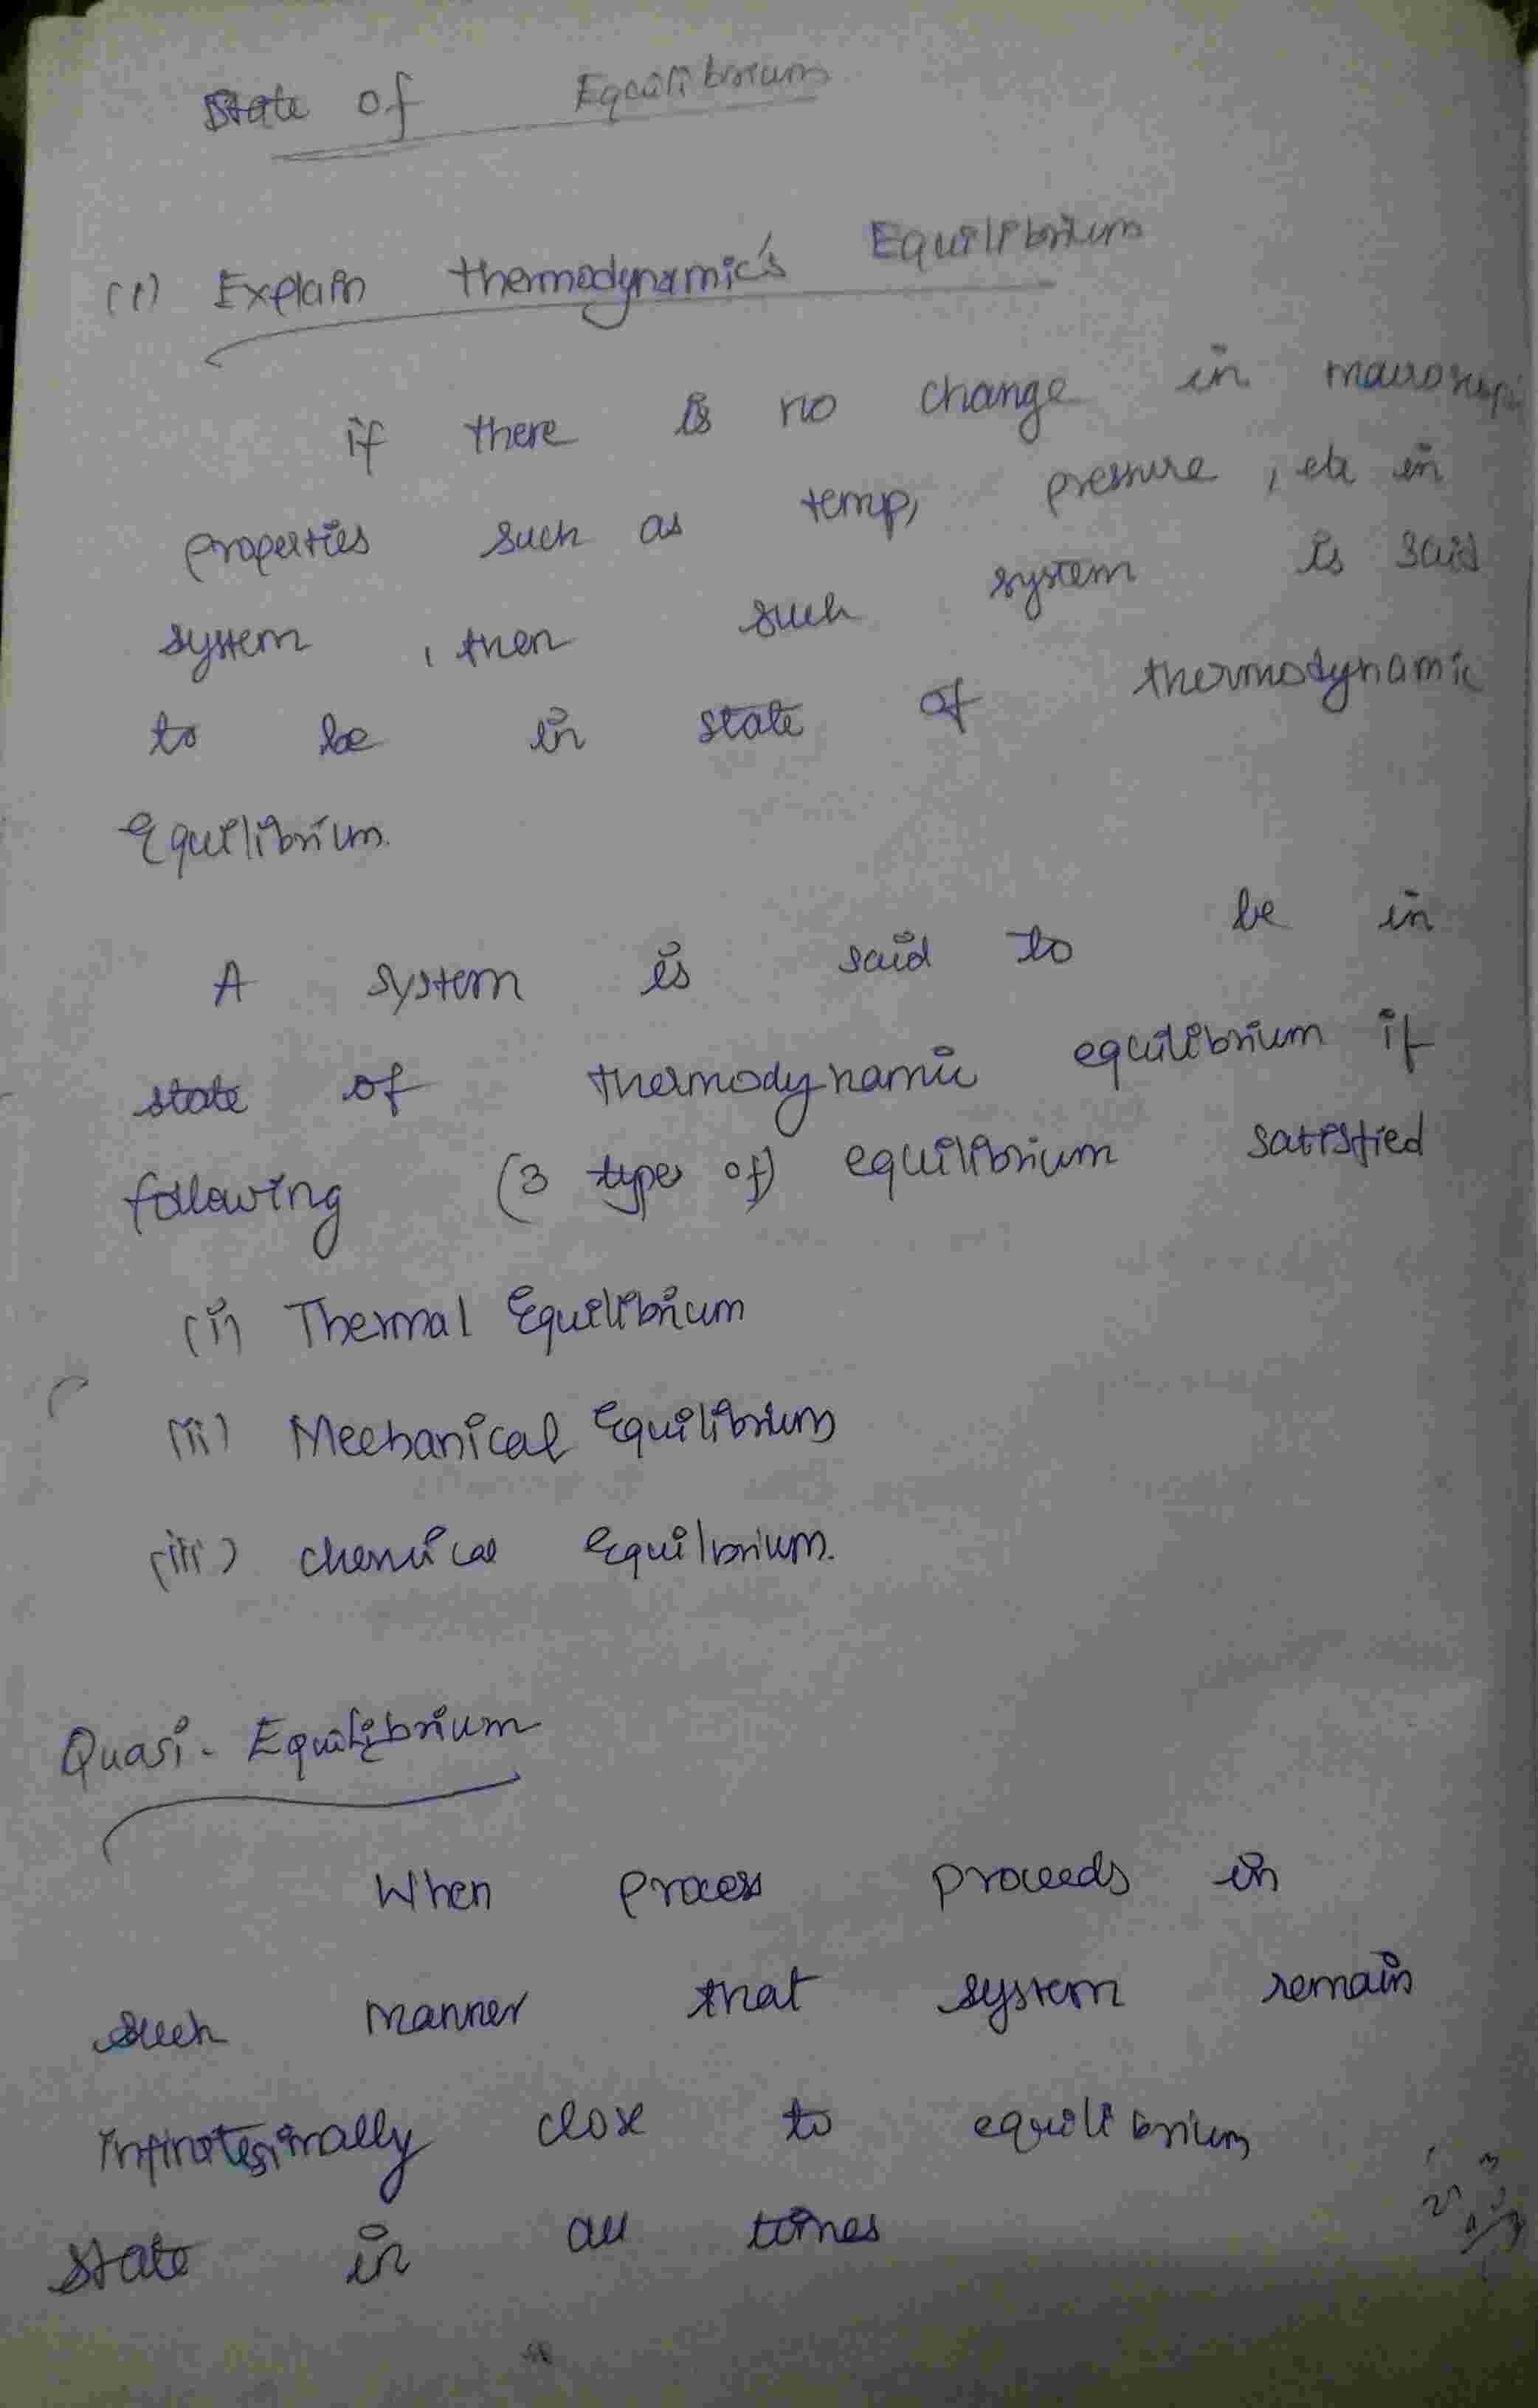 State of Equilibrium
(1) Explain thermodynamic's Equilibrium
if there is no change in macroscopic
properties such as temp, pressure, etc in
system, then such system is said
to be in state of thermodynamic
Equilibrium.
A system is said to be in
state of thermodynamic equilibrium if
following (3 types of) equilibrium satisfied
(i) Thermal Equilibrium
(ii) Mechanical Equilibrium
(iii) chemical Equilbrium.
Quasi-Equilibrium
When process proceeds in
such manner that system remain
infinitesimally close to equilibrium
state in all times